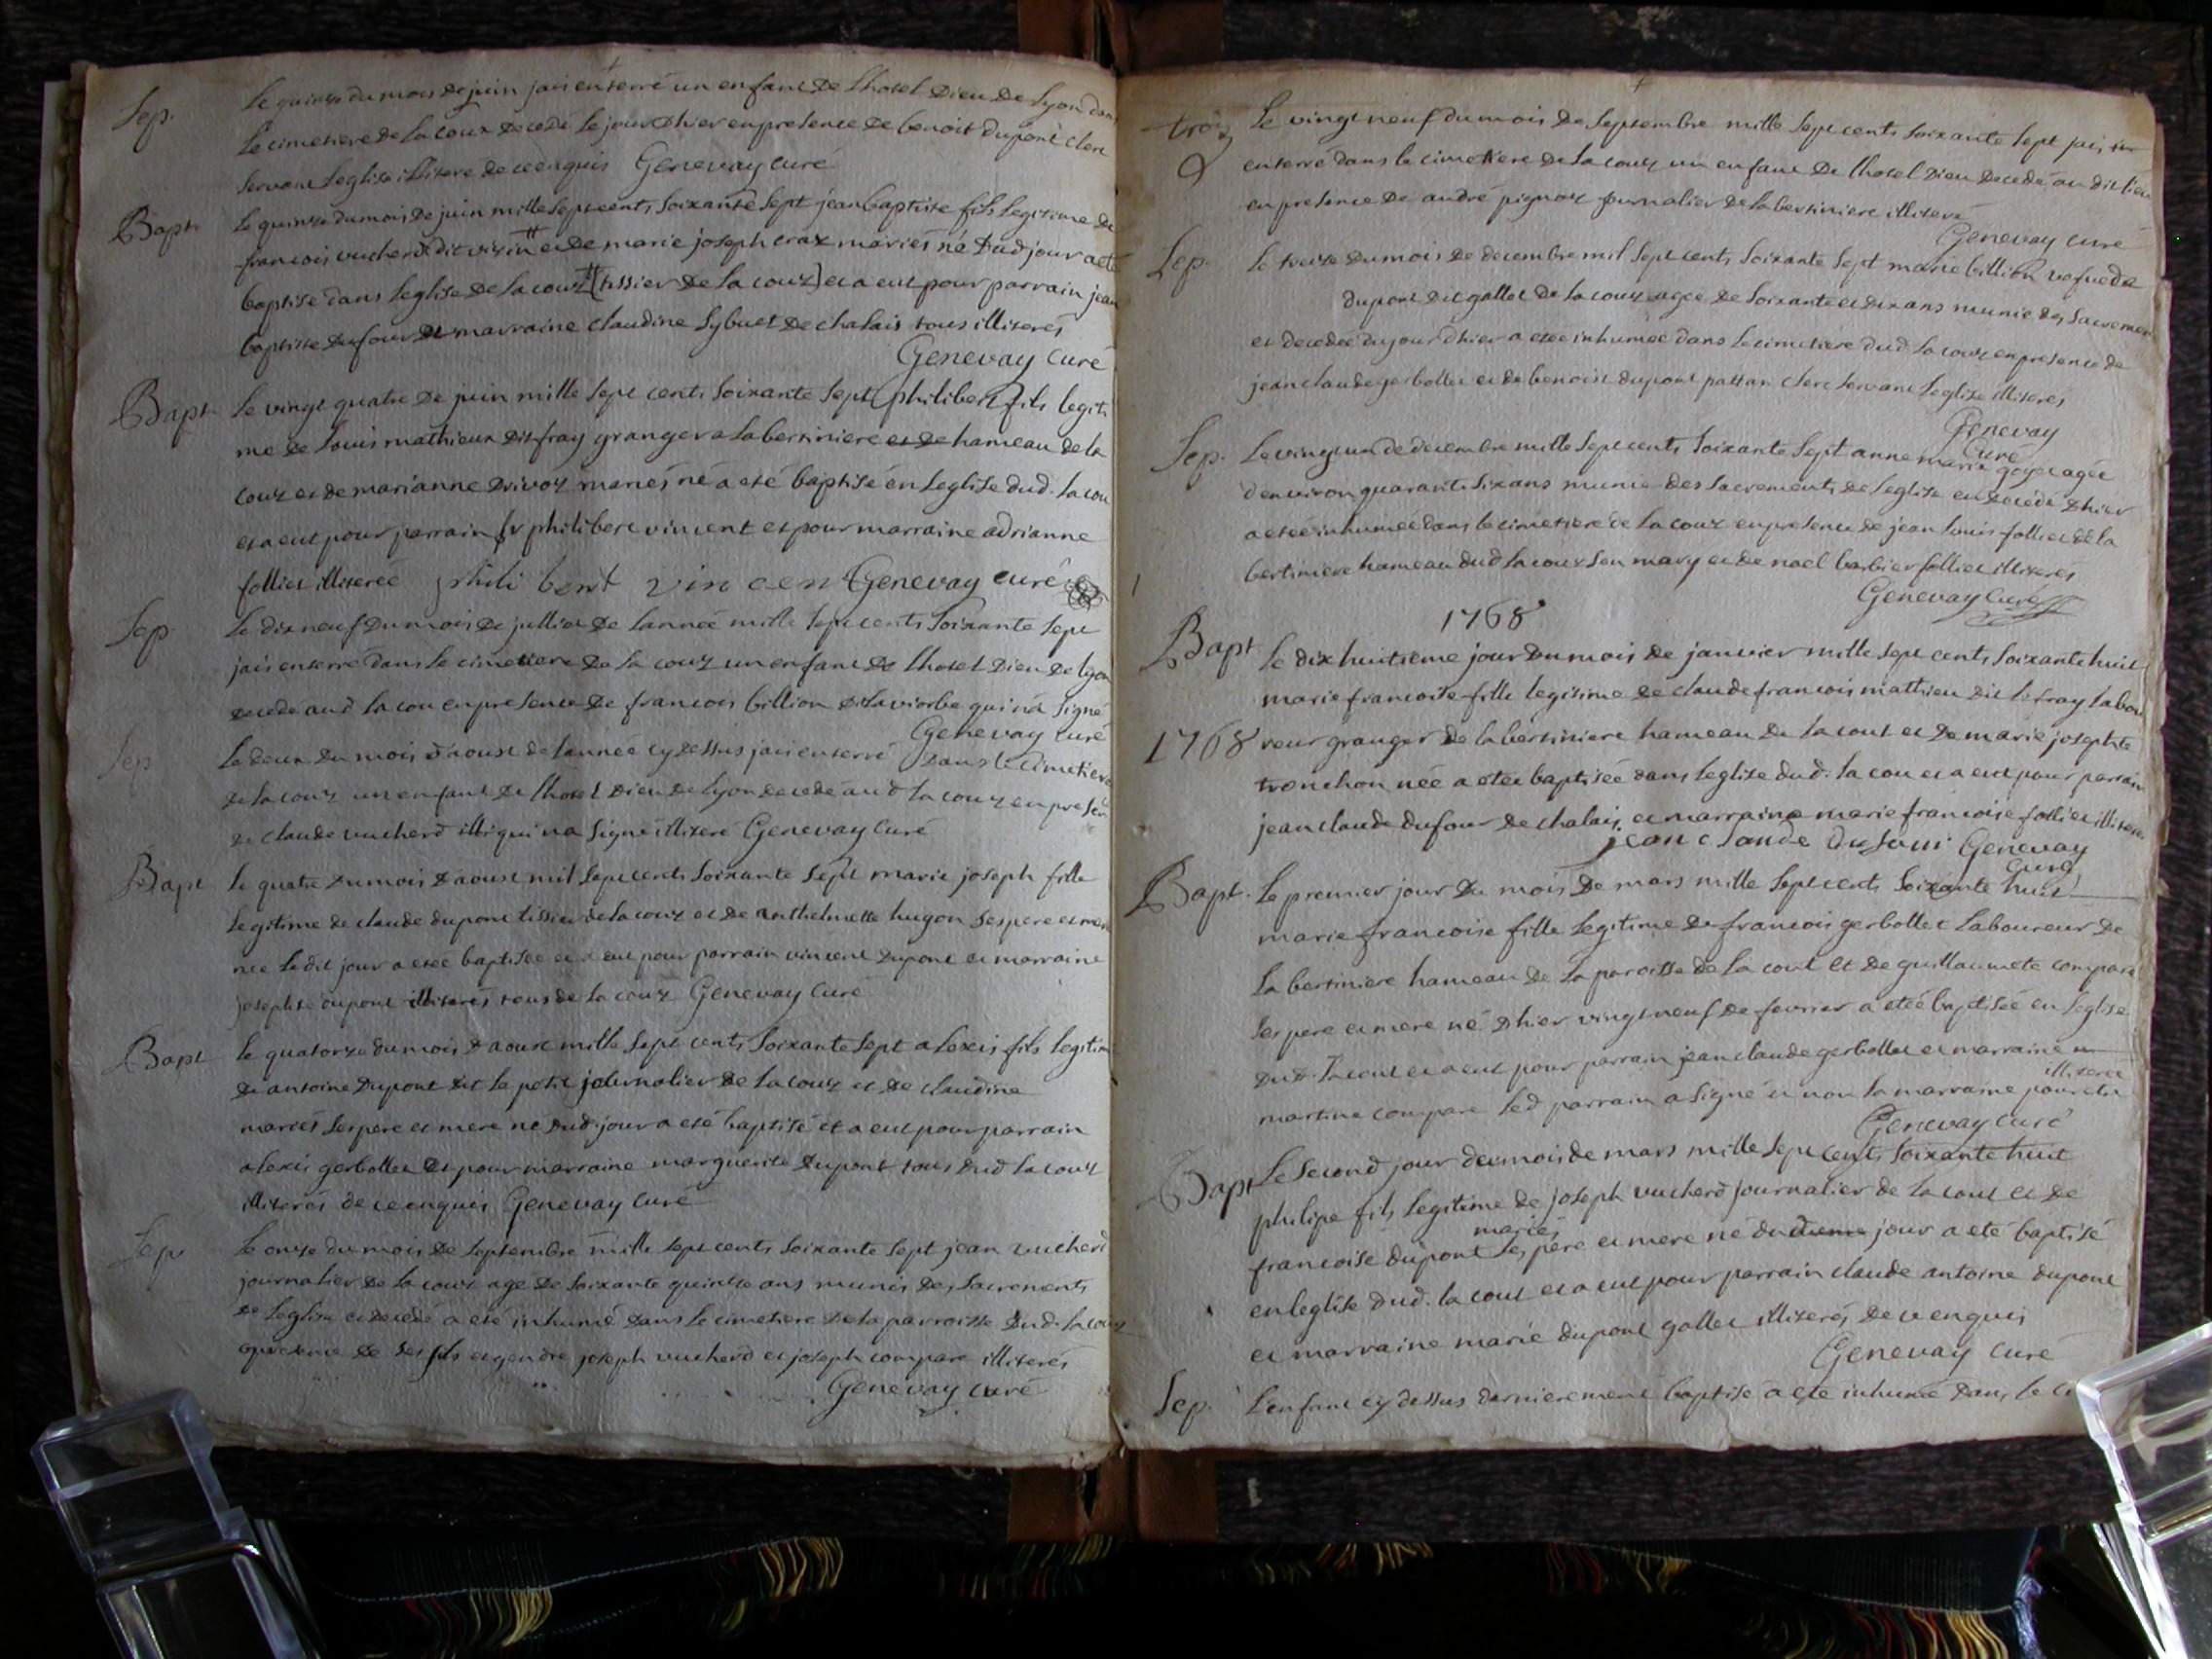 Sep. Le quinze du mois de juin jai enterré un enfant de lhotel Dieu de Lyon dan
le cimetiere de la coux decedé le jour dhier en presence de benoit dupont clerc
servant leglise illiteré de ce enquis Genevay curé
Bapt. le quinze du mois de juin mille sept cents soixante sept jean baptiste fils legitime de
francois vucherd dit vizin # et de marie joseph craz mariés né dud jour a eté
baptisé dans leglise de la coux # [tissier de la coux] et a eut pour parrain jean
baptiste dufour et marraine claudine Sybuet de chalais tous illiterés
Genevay curé
Bapt. Le vingt quatre de juin mille sept cents soixante sept philibert fils legiti
me de Louis mathieux dit fray granger a la bertiniere et de hameau de la
couz et de marianne drivoz mariés né a eté baptisé en leglise dud. la cou
et a eut pour parrain sr philibert vincent et pour marraine adrianne
folliet illiterée phili bert vin cen Genevay curé
Sep. Le dix neuf du mois de juillet de lannée mille sept cents soixante sept
jai enterré dans le cimetiere de la couz un enfant de lhotel Dieu de lyon
decedé aud la cou en presence de francois billion dit laviorbe qui na signé
Genevay curé
Sep. Le deux du mois daoust de lannée cy dessus jai enterré dans le cimetiere
de la couz un enfant de lhotel Dieu de lyon decedé aud la couz en presen
de claude vucherd qui na signé illiteré Genevay curé
Bapt. le quatre du mois daoust mil sept cents soixante sept marie joseph fille
legitime de claude dupont tissier de la couz et de anthelmette hugon ses pere et mere
née ledit jour a eteé baptisée et a eut pour parrain vincent dupont et marraine
josephte dupont illiterés tous de la couz Genevay curé
Bapt. le quatorze du mois daoust mille sept cents soixante sept alexis fils legitim
de antoine Dupont dit le petit journalier de la couz et de claudine
mariés ses pere et mere né dud. jour a eté baptisé et a eut pour parrain
alexis gerbollet et pour marraine marguerite Dupont tous dud la couz
illiterés de ce enquis Genevay curé
Sep. Le onze du mois de septembre mille sept cents soixante sept jean vucherd
journalier de la couz agé de soixante quinze ans munis des sacrements
de leglise et decedé a eté inhumé dans le cimetiere de la parroisse dud. la couz
en presence de ses fils et gendre joseph vucherd et joseph compare illiterés
Genevay curé
trois
Le vingt neuf du mois de septembre mille sept cents soixante sept jai
enterré dans le cimetiere de la couz un enfant de lhotel Dieu decedé au dit lieu
en presence de andré pignoz journalier de la bertiniere illiteré
Genevay curé
Sep. Le treize du mois de decembre mil sept cents soixante sept marie billion vefue de
dupont dit gallet de la couz agée de soixante et dix ans munie des sacremen
et decedée du jour dhier a eteé inhumée dans le cimetiere dud la couz en presence de
jean claude gerbollet et de benoist dupont clerc servant leglise illiterés
Genevay
curé
Sep. Le vingt un de decembre mille sept cents soixante sept anne marie goyet agée
denviron quarante six ans munie des sacrements de leglise en decedé dhier
a eteé inhumée dans le cimetiere de la couz en presence de jean louis folliet de la
bertiniere hameau dud la couz son mary et de noel barbier folliet illiterés
Genevay curé
1768
Bapt. Le dix huitieme jour du mois de janvier mille sept cents soixante huit
marie francoise fille legitime de claude francois mathieu dit le fray labou
1768 reur granger de la bertiniere hameau de la cout et de marie josephte
tronchon née a eteé baptisée dans leglise dud. la cou et a eut pour parrain
jean claude dufour de chalais. et marraine marie francoise folliet illiteré
jean claude dufour Genevay
curé
Bapt. Le premier jour du mois de mars mille sept cents soixante huit
marie francoise fille legitime de francois gerbollet laboureur de
la bertiniere hameau de la paroisse de la cout et de guillaumete compare
ses pere et mere né dhier vingt neuf de fevrier a eteé baptiseé en leglise
dud. la cout et a eut pour parrain jean claude gerbollet et marraine
martine compare led parrain a signé et non la marraine pour etre illiterée
Genevay curé
Bapt. Le second jour du mois de mars mille sept cents soixante huit
philipe fils legitime de joseph vucherd journalier de la cout et de
francoise dupont mariés ses pere et mere né du jour a eté baptisé
en leglise dud. la cout et a eut pour parrain claude antoine dupont
et marraine marie dupont gallet illiterés de ce enquis
Genevay curé
Sep. Lenfant cy dessus dernierement baptisé a eté inhumé dans le ci